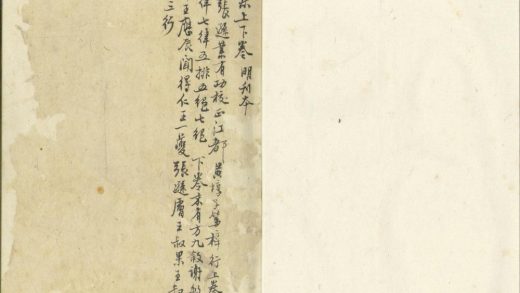 上下卷 明刊本
張遜業有功校正江都 黃埻子篤梓行上卷
律七律五排五絕七絕 下卷末有方九敘謝
王應辰聞得仁王一夔張遜膚王叔果王叔
三行